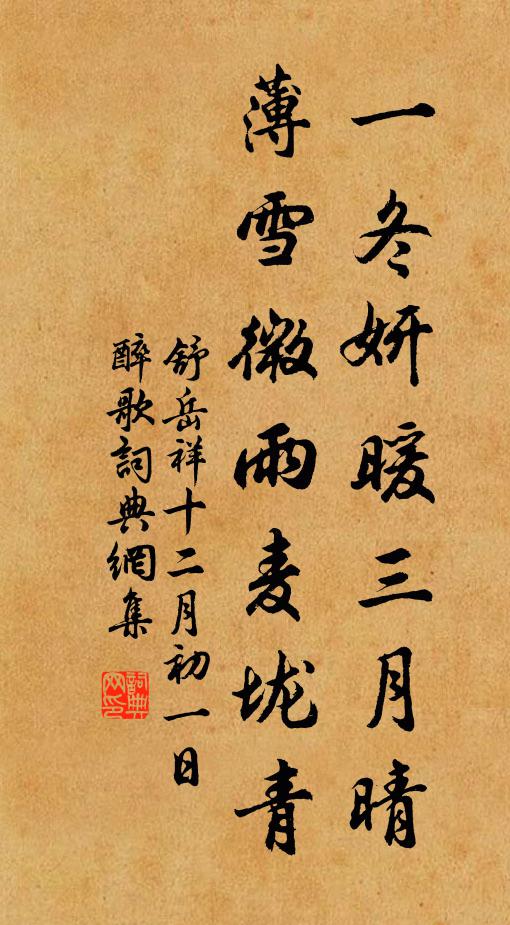 一冬妍暖三月晴
薄雪微雨麦垅青
舒岳祥十二月初一日
醉歌詞典網集
詞典网印